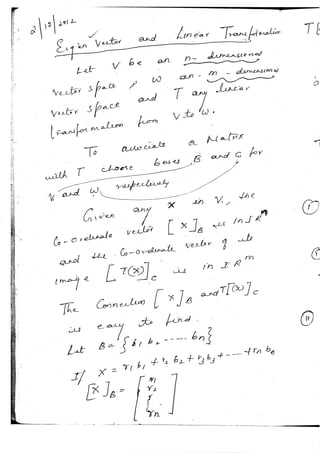 2/12/2012
Eigen Vector and Linear Transformation
Let V be an n-dimensional
Vector space, W an-m-dimensional
Vector space and T any linear
transformation from V to W.
To associate a Matrix
with T choose bases B and C for
V and W respectively
Given any x in V, the
Co-ordinate vector [x]B is in IRn
and the Co-ordinate vector of its
image [T(x)]C is in IRm
The Connection [x]B and T[(x)]C
is easy to find.
Let B = {b1 b2 ---- bn}
If x = r1b1 + r2 b2 + r3b3 + --- + rn bn
[x]B = [ r1
r2
rn ]